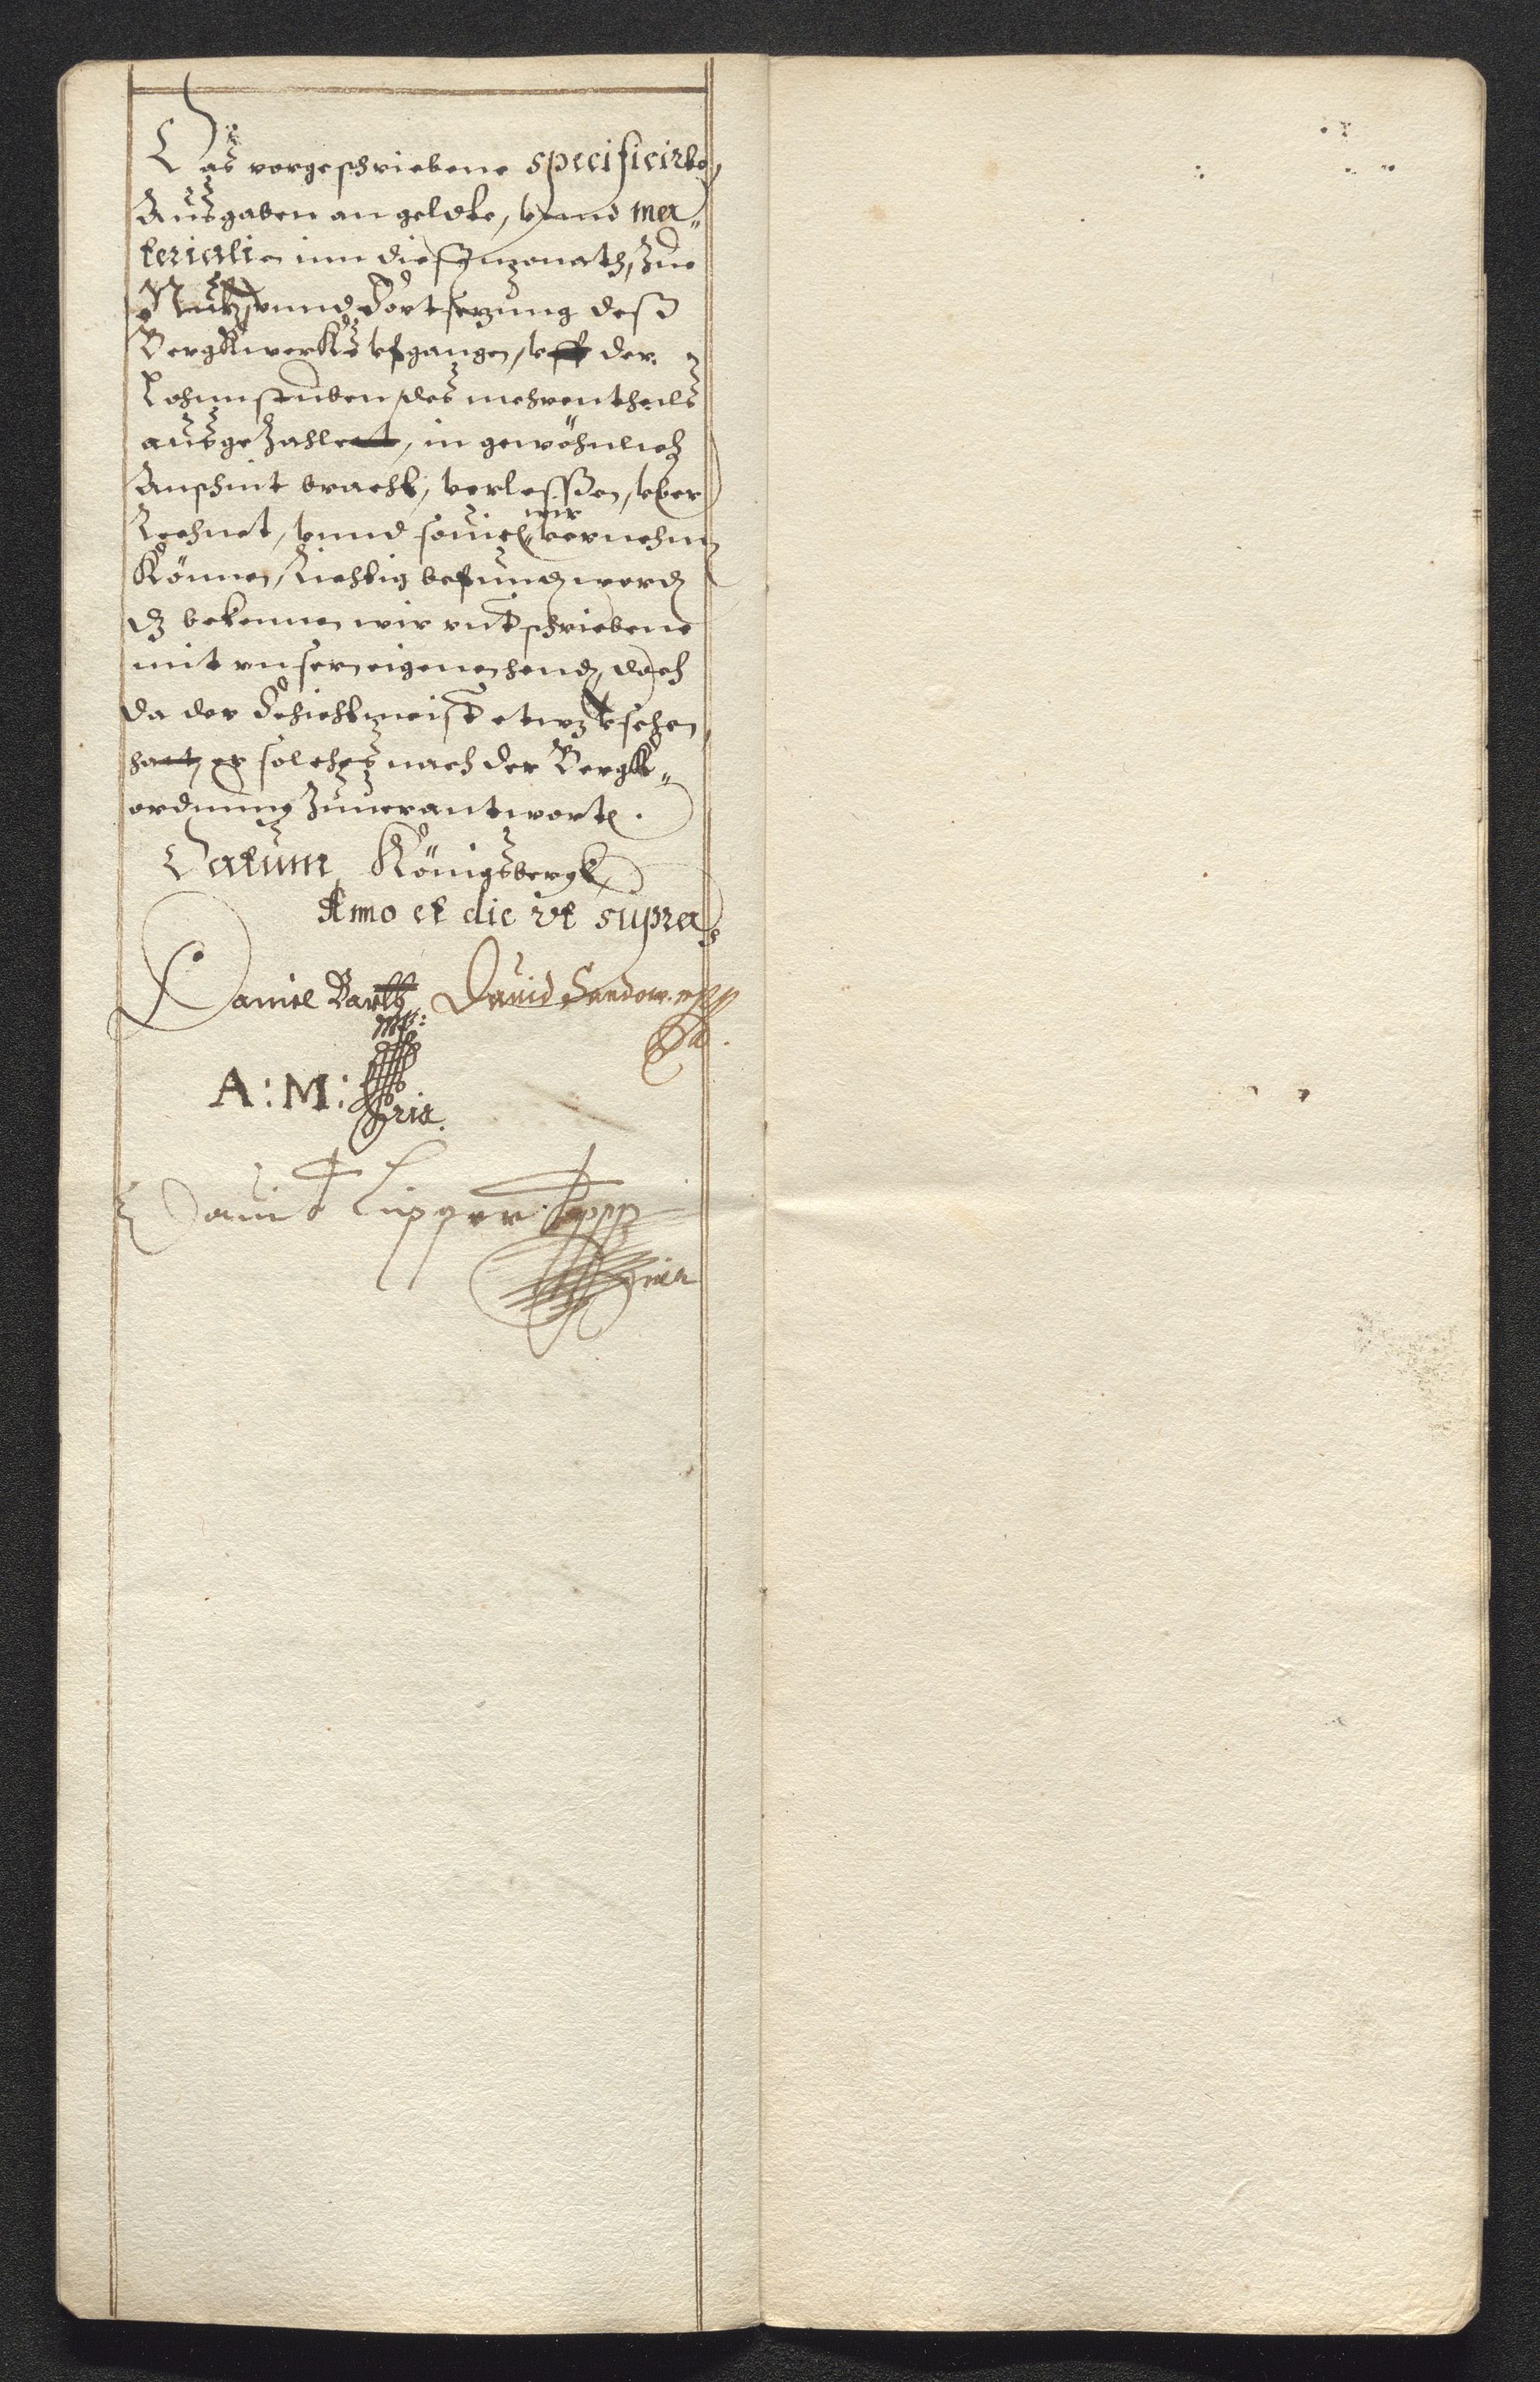 Das vorgeschriebene specificirte
Ausgaben an geldte, vnnd ma„
terialien inn diesen monath, Zue
Nutz vnnd Fortsezung deß
BergKwerKs vfgangen, vff der
Lohnstuben, des mehrentheils
ausgeZahlett, in gewöhnlich
Anschnit bracht, verlessen, vber
Rechnet, vnnd souiel wir vernehmen
Können, Richtig befunden worden
dz bekennen wir vntschriebene
mit vnsern eigenen henden, doch
da der Schichtmeister etwz vsehen
hatt, er solches nach der BergK„
ordnung Zuuerantworten.
Datum Königsbergk
Anno et die vt supra
Daniel Barth David Sandow. mpp
mp:
A:M:
Dauit Lipper